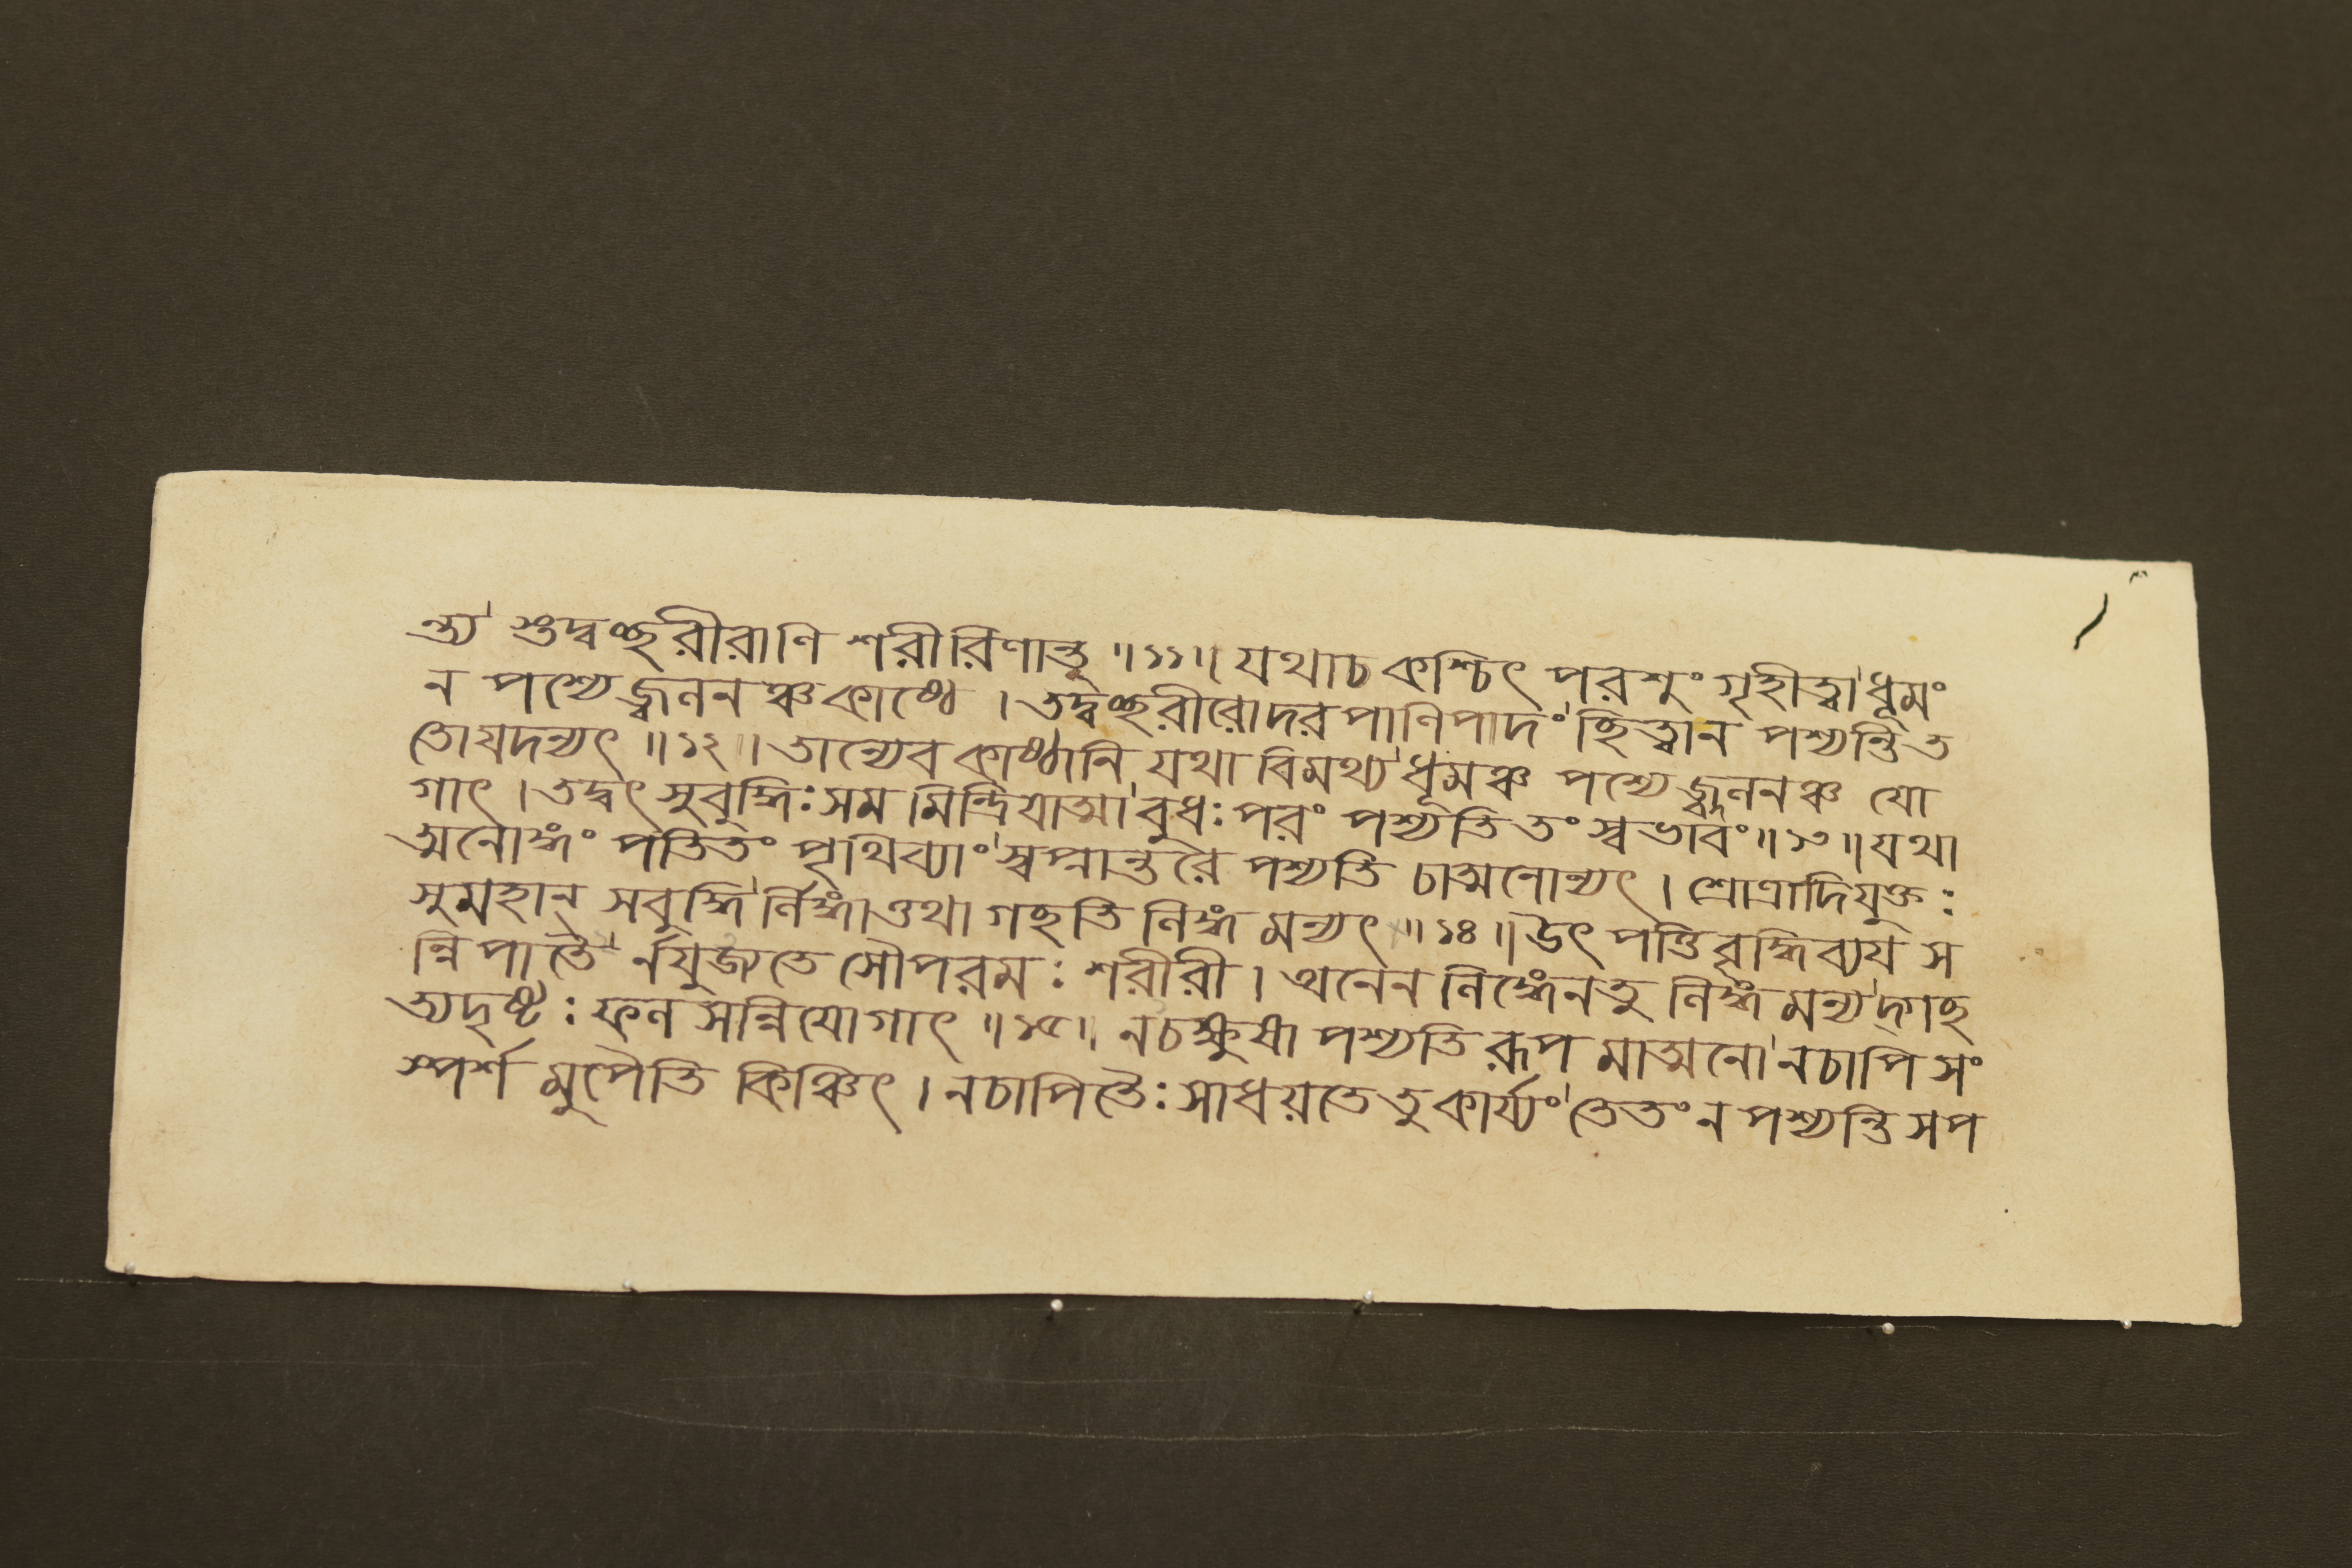 ন্ত্য' শুদ্বচ্ছরীরাণি শরীরিণান্তু ॥১১॥ যথাচ কশ্চিৎ পরশুং গৃহীত্বা' ধূমং
ন পশ্যেজ্জ্বলনঞ্চকাষ্ঠে । তদ্বচ্ছরীরোদরপাণিপাদং' ছিত্বান পশ্যন্তি ত
তোযদন্যৎ ॥১২॥ তান্যেব কাষ্ঠানি যথা বিমথ্য' ধূমঞ্চ পশ্যেজ্জ্বলনঞ্চ যো
গাৎ । তদ্বৎ সুবুদ্ধিঃ সম মিন্দ্রিযাত্মা' বুধঃ পরং পশ্যতি তং স্বভাবং ॥১৩॥ যথা
ত্মনোঙ্গং পতিতং পৃথিব্যাং' স্বপ্নান্তরে পশ্যতি চাত্মনোন্যৎ । শ্রোত্রাদিযুক্তঃ
সুমহান্ সবুদ্ধি' র্লিঙ্গাত্তথা গছতি লিঙ্গ মন্যৎ ॥১৪॥ উৎ পত্তিবৃদ্ধিব্যয স
ন্নি পাতৈ' র্নযুজ্যতে সৌপরমঃ শরীরী । অনেন লিঙ্গেনতু লিঙ্গমন্য' দ্গছ
ত্যদৃষ্টঃ ফল সন্নিযোগাৎ ॥১৫॥ নচক্ষুষা পশ্যতি রূপ মাত্মনো' নচাপি সং
স্পর্শ মুপৈতি কিঞ্চিৎ । নচাপিতৈঃ সাধয়তেতুকার্য্যং' তেতং ন পশ্যন্তি সপ